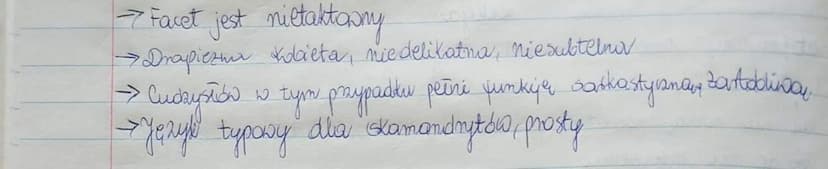 → Facet jest nietaktowny
→ Drapieżna kobieta, niedelikatna, niesubtelna
→ Cudzysłów w tym przypadku pełni funkcję sarkastyczną, żartobliwą
→ Język typowy dla skamandrytów, prosty